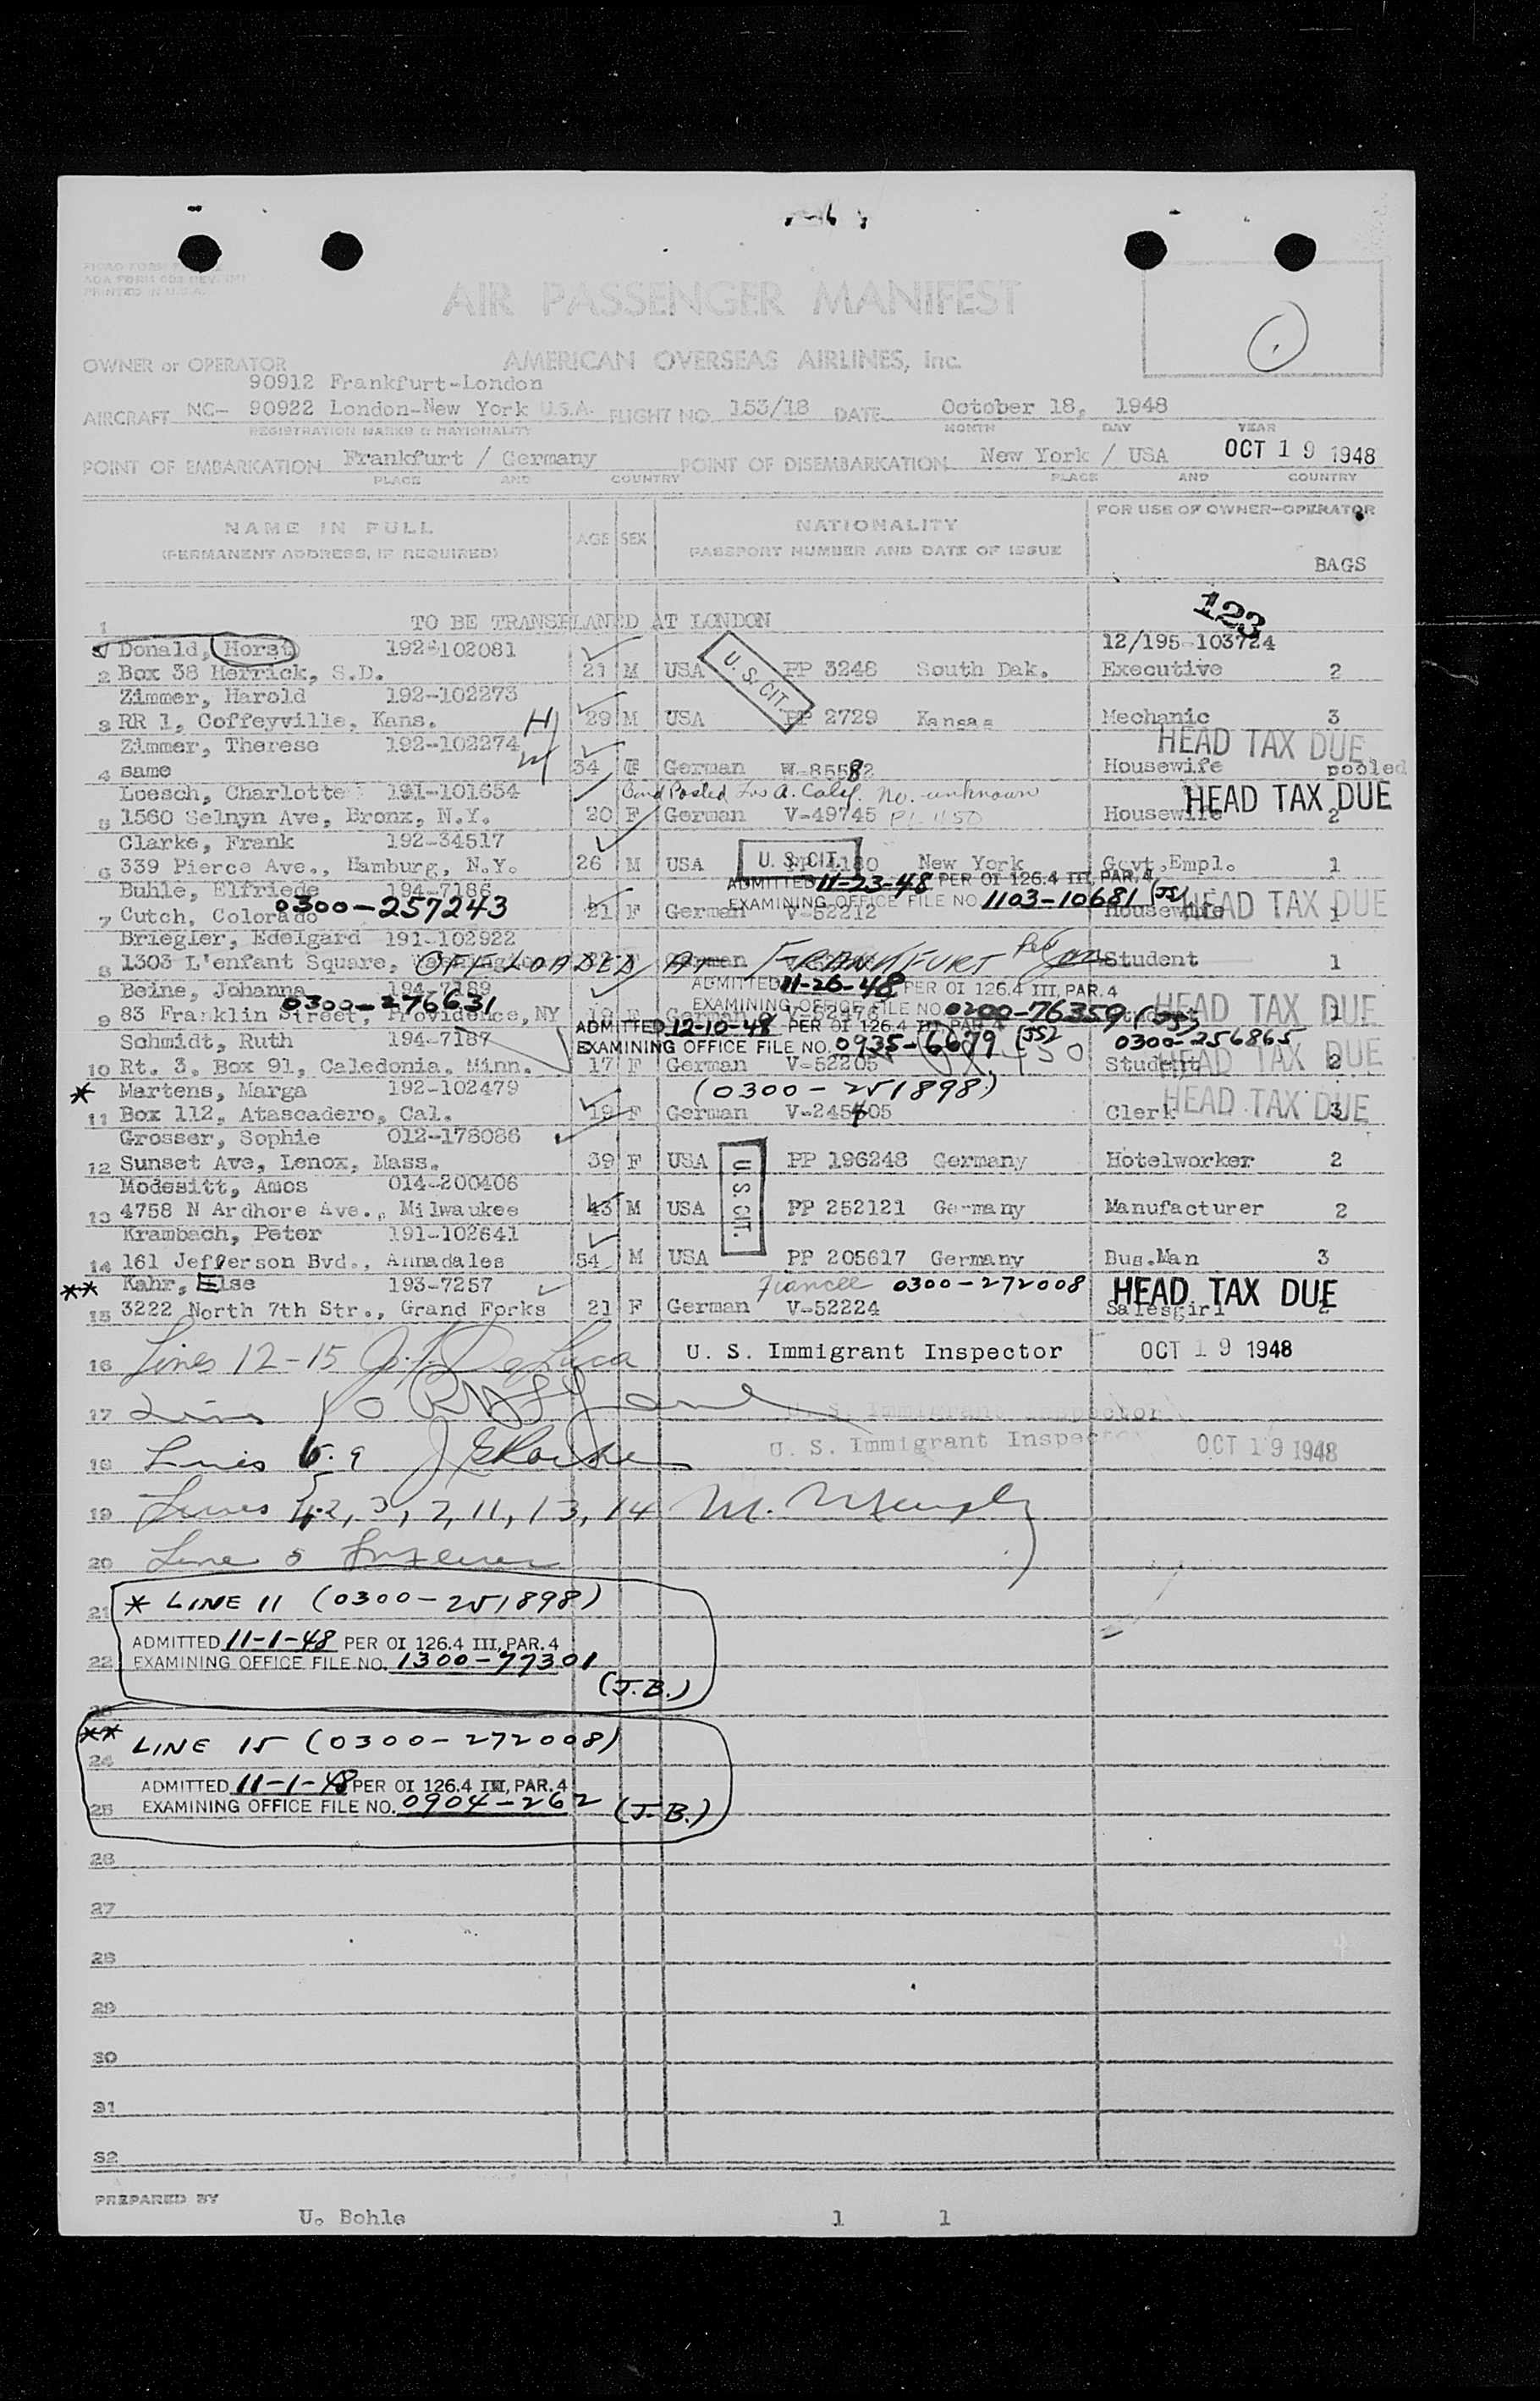 AIR PASSENGER MANIFEST
OWNER or OPERATOR AMERICAN OVERSEAS AIRLINES, Inc.
90912 Frankfurt-London
AIRCRAFT NC- 90922 London-New York U.S.A. FLIGHT NO. 153/18 DATE October 18, 1948
REGISTRATION MARKS & NATIONALITY MONTH DAY YEAR
OCT 19 1948
POINT OF EMBARKATION Frankfurt / Germany POINT OF DISEMBARKATION New York / USA
PLACE AND COUNTRY PLACE AND COUNTRY
NAME IN FULL AGE SEX NATIONALITY FOR USE OF OWNER-OPERATOR
(PERMANENT ADDRESS, IF REQUIRED) PASSPORT NUMBER AND DATE OF ISSUE
BAGS
123
1 TO BE TRANSPLANED AT LONDON
Donald, Horst 192-102081 12/195-103724
2 Box 38 Herrick, S.D. 21 M USA PP 3248 South Dak. Executive 2
U. S. CIT.
Zimmer, Harold 192-102273
3 RR 1, Coffeyville, Kans. H 29 M USA PP 2729 Kansas Mechanic 3
Zimmer, Therese 192-102274 HEAD TAX DUE
4 same W 34 F German W-85582 Housewife pooled
Loesch, Charlotte 191-101654 Bond Posted no. unknown HEAD TAX DUE
5 1560 Selnyn Ave, Bronx, N.Y. 20 F German V-49745 Housewife 2
Clarke, Frank 192-34517
6 339 Pierce Ave., Hamburg, N.Y. 26 M USA U. S. CIT. New York Govt,Empl. 1
Buhle, Elfriede 194-7186 ADMITTED 11-23-48 PER OI 126.4 III, PAR. 4
0300-257243 EXAMINING OFFICE FILE NO. 1103-10681 (JS)
7 Cutch, Colorado 21 F German V-52212 Housewife HEAD TAX DUE 1
Briegler, Edelgard 191-102922
8 1303 L'enfant Square, OFFLOADED AT FRANKFURT Student 1
Beine, Johanna 194-7189 ADMITTED 11-26-48 PER OI 126.4 III, PAR. 4
0300-276631 EXAMINING OFFICE FILE NO. 0200-76359
9 83 Franklin Street, Providence, NY HEAD TAX DUE 1
ADMITTED 12-10-48 PER OI 126.4 III PAR 4
Schmidt, Ruth 194-7187 EXAMINING OFFICE FILE NO. 0935-6679 (JS) 0300-256865
10 Rt. 3, Box 91, Caledonia. Minn. 17 F German V-52205 Student HEAD TAX DUE 2
* Martens, Marga 192-102479 (0300-251898)
11 Box 112, Atascadero, Cal. 19 F German V-245405 Clerk HEAD TAX DUE 3
Grosser, Sophie 012-178086
12 Sunset Ave, Lenox, Mass. 39 F USA PP 196248 Germany Hotelworker 2
U. S. CIT.
Modesitt, Amos 014-200406
13 4758 N Ardhore Ave., Milwaukee 43 M USA PP 252121 Germany Manufacturer 2
Krambach, Peter 191-102641
14 161 Jefferson Bvd., Annadales 54 M USA PP 205617 Germany Bus.Man 3
** Kahr, Else 193-7257 Fiancee 0300-272008 HEAD TAX DUE
15 3222 North 7th Str., Grand Forks 21 F German V-52224 Salesgirl 2
16 Lines 12-15 U. S. Immigrant Inspector OCT 19 1948
17 Line 10 U. S. Immigrant Inspector
18 Lines 6.9 U. S. Immigrant Inspector OCT 19 1948
19 Lines 4, 2, 3, 7, 11, 13, 14
20 Line 5
21 * LINE 11 (0300-251898)
ADMITTED 11-1-48 PER OI 126.4 III, PAR. 4
22 EXAMINING OFFICE FILE NO. 1300-77301
(J.B.)
23
** LINE 15 (0300-272008)
24
ADMITTED 11-1-48 PER OI 126.4 III, PAR. 4
25 EXAMINING OFFICE FILE NO. 0904-262 (J.B.)
26
27
28
29
30
31
32
PREPARED BY
U. Bohle 1 1